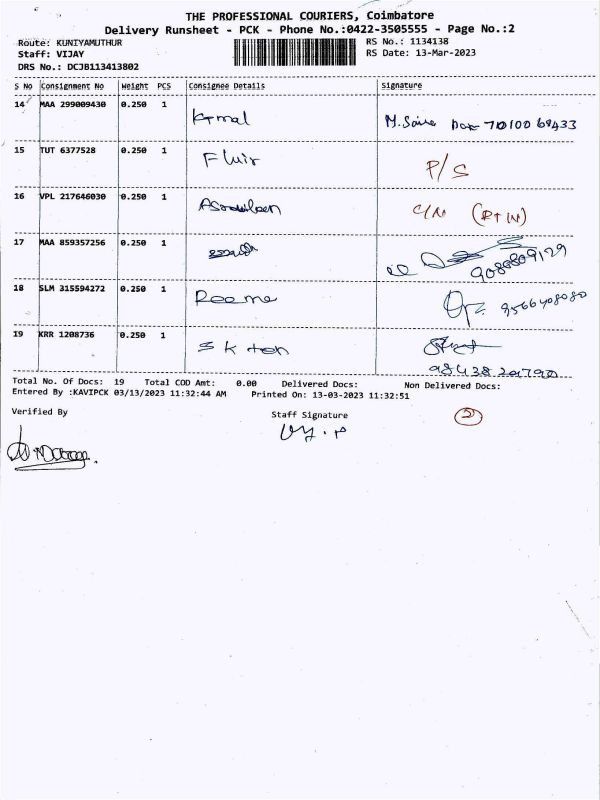 THE PROFESSIONAL COURIERS, Coimbatore
Delivery Runsheet - PCK - Phone No.:0422-3505555 - Page No.:2
Route: KUNIYAMUTHUR
RS No.: 1134138
Staff: VIJAY
RS Date: 13-Mar-2023
DRS No.: DCJB113413802
S No Consignment No Weight PCS Consignee Details Signature
14 MAA 299009430 0.250 1
15 TUT 6377528 0.250 1
P/S
16 VPL 217646030 0.250 1
C/N
17 MAA 859357256 0.250 1
9080809129
18 SLM 315594272 0.250 1 Reema
9566408080
19 KRR 1208736 0.250 1 S K ten
Total No. Of Docs: 19 Total COD Amt: 0.00 Delivered Docs: Non Delivered Docs:
Entered By :KAVIPCK 03/13/2023 11:32:44 AM Printed On: 13-03-2023 11:32:51
Verified By
Staff Signature
2